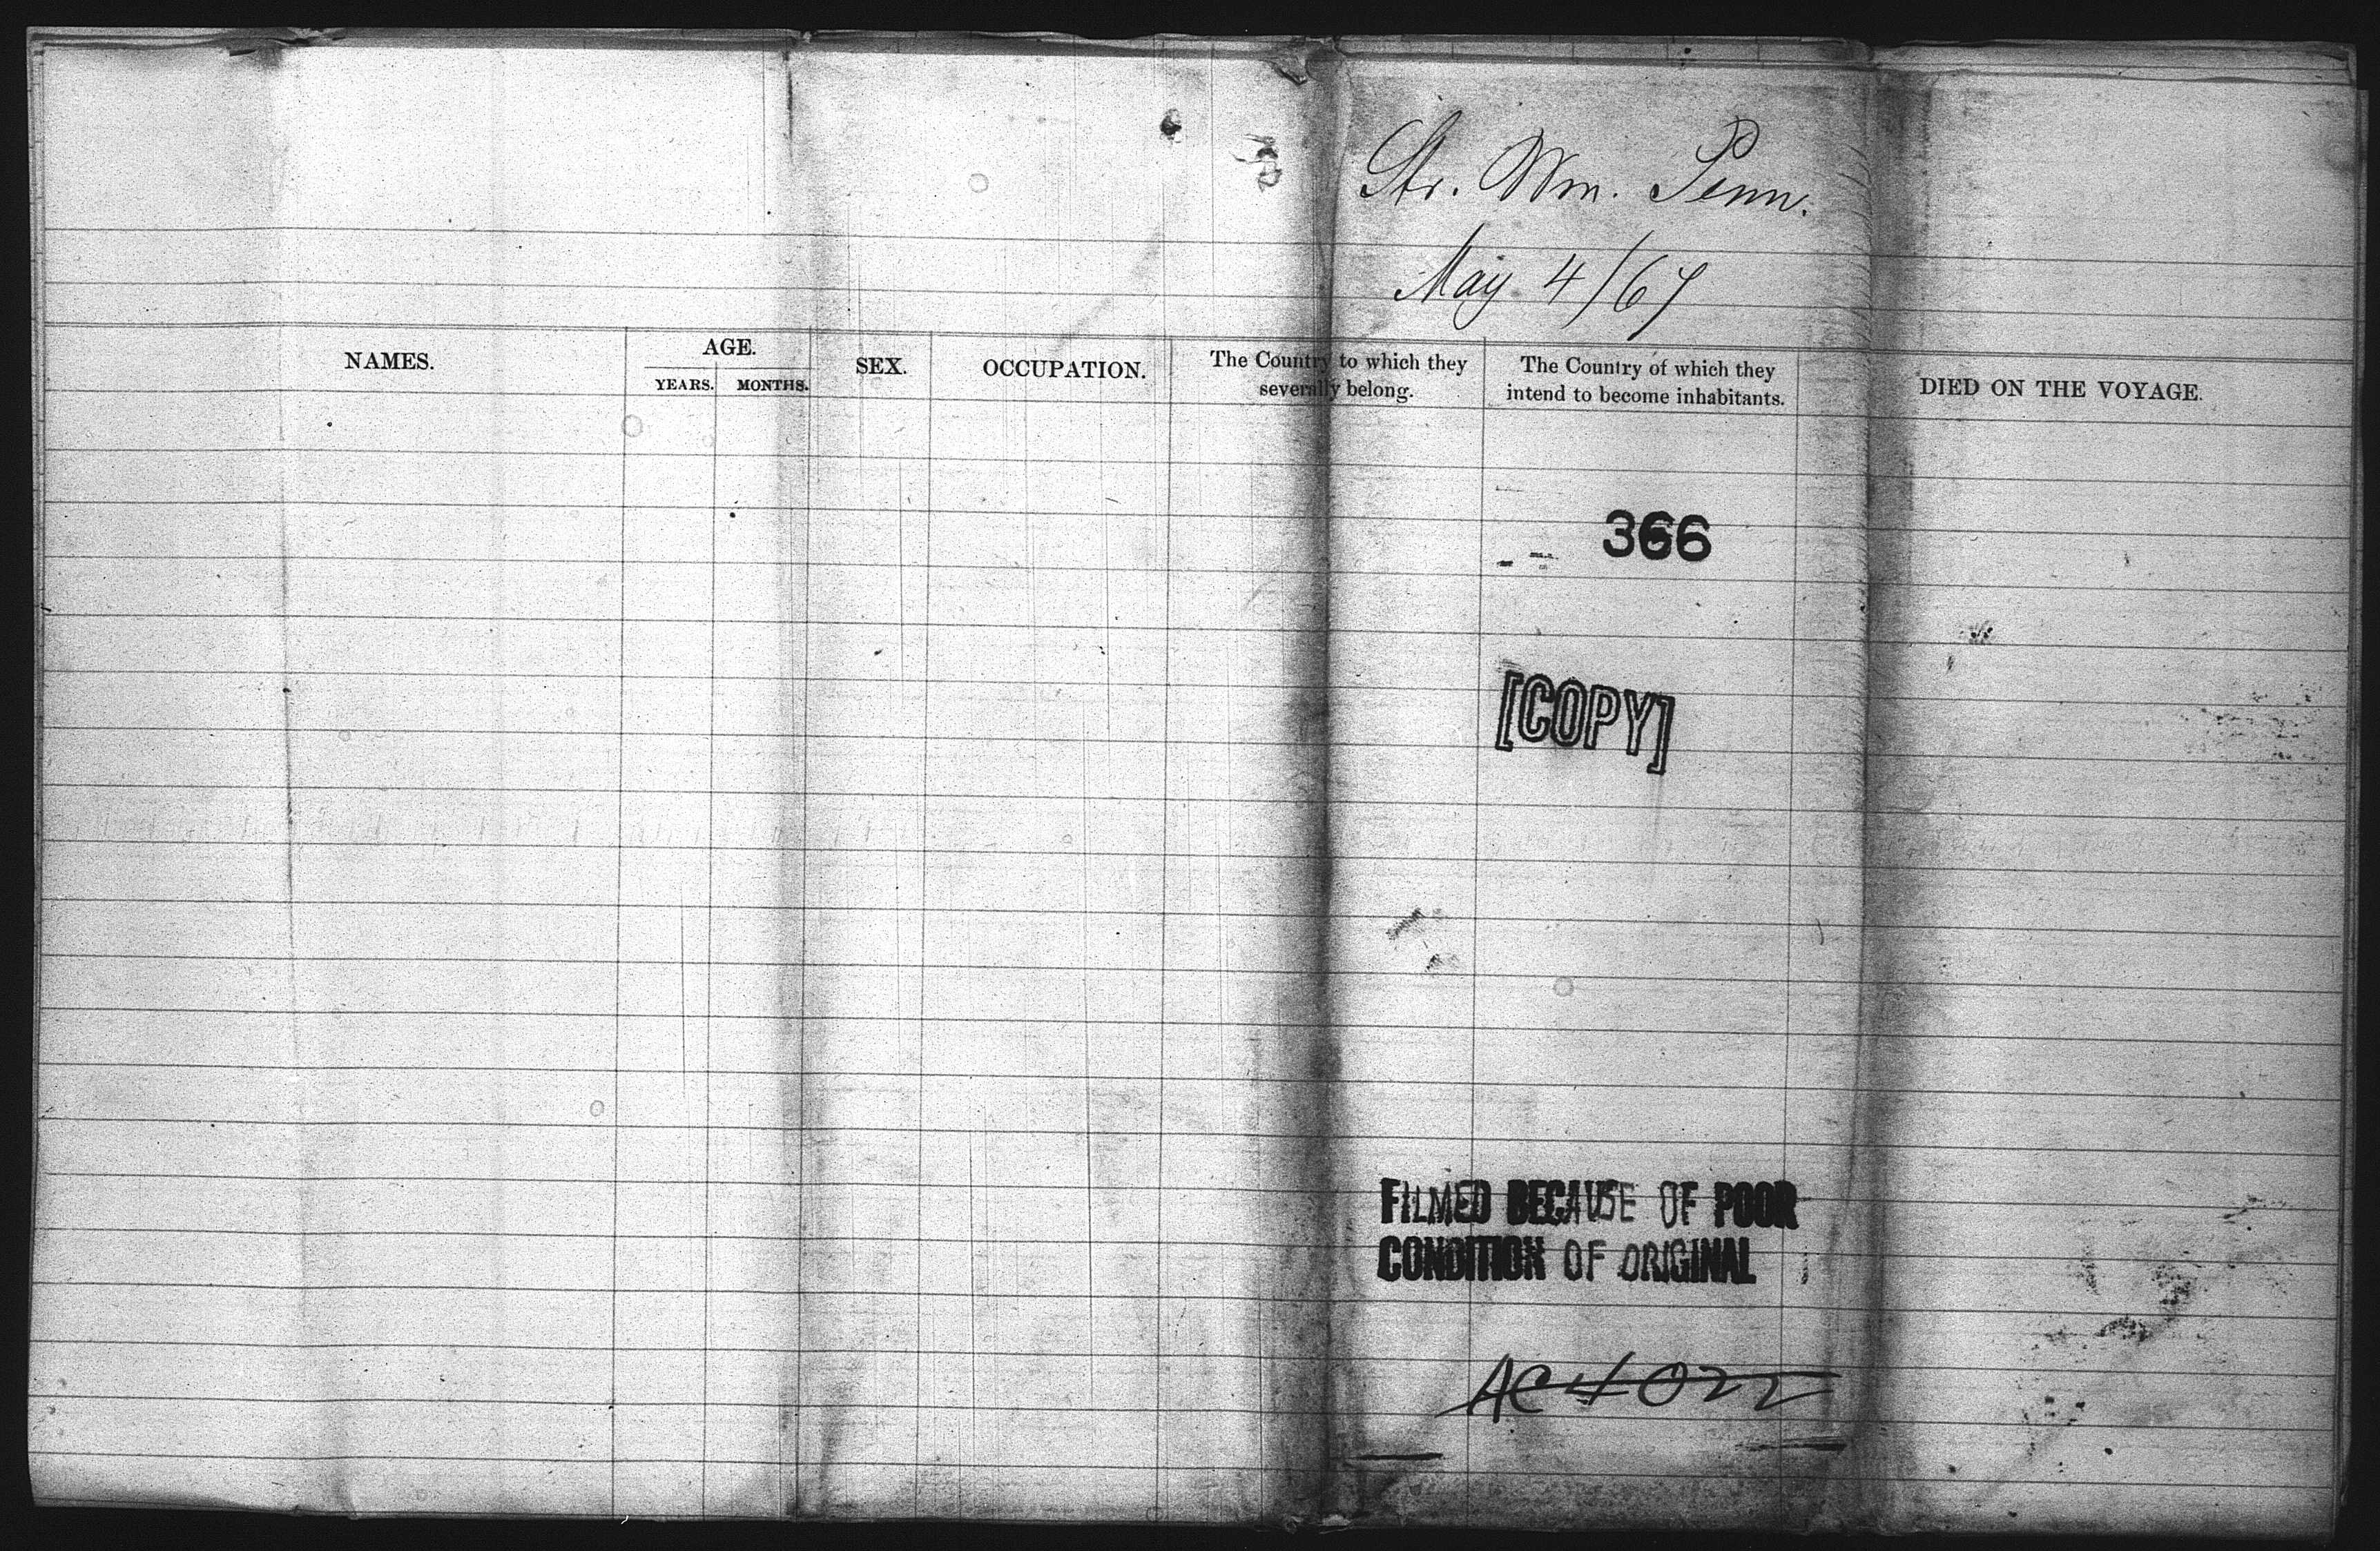 Str. Wm. Penn.
May 4/67
NAMES.
AGE.
YEARS. MONTHS.
SEX.
OCCUPATION.
The Country to which they
severally belong.
The Country of which they
intend to become inhabitants.
DIED ON THE VOYAGE.
366
[COPY]
FILMED BECAUSE OF POOR
CONDITION OF ORIGINAL